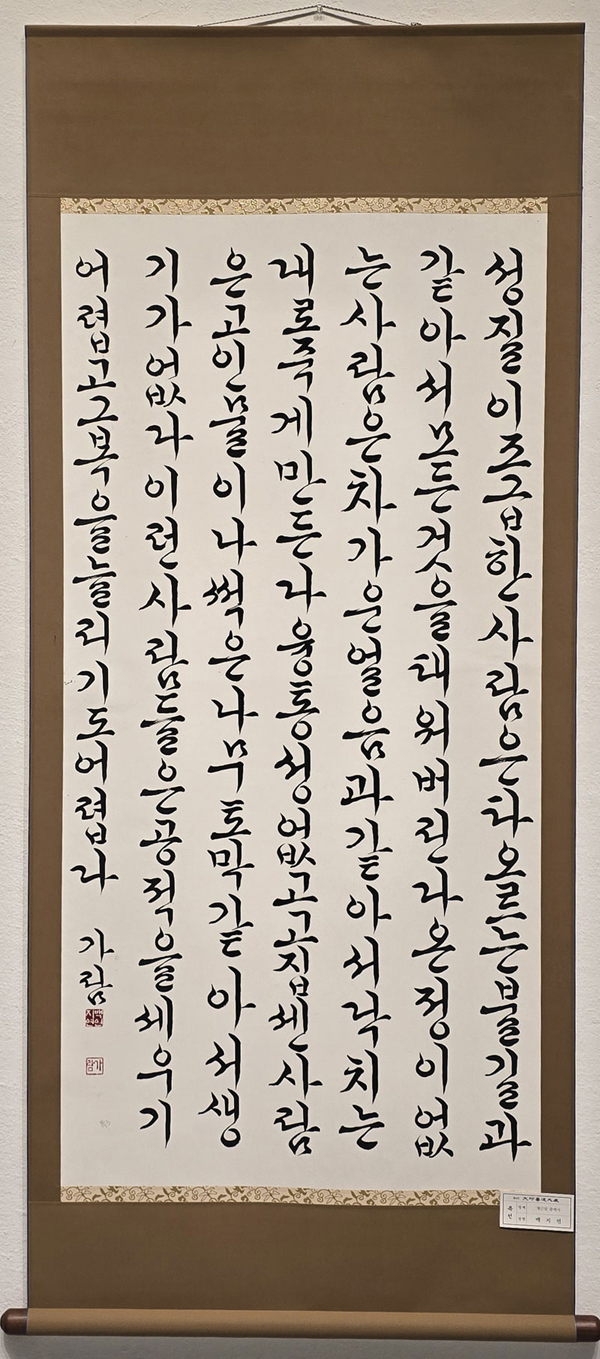 성질이조급한사람은타오르는불길과
같아서모든것을태워버린다온정이없
는사람은차가운얼음과같아서닥치는
대로죽게만든다융통성없고고집센사람
은고인물이나썩은나무토막같아서생
기가없다이런사람들은공적을세우기
어렵고그복을늘리기도어렵다 가람
가람